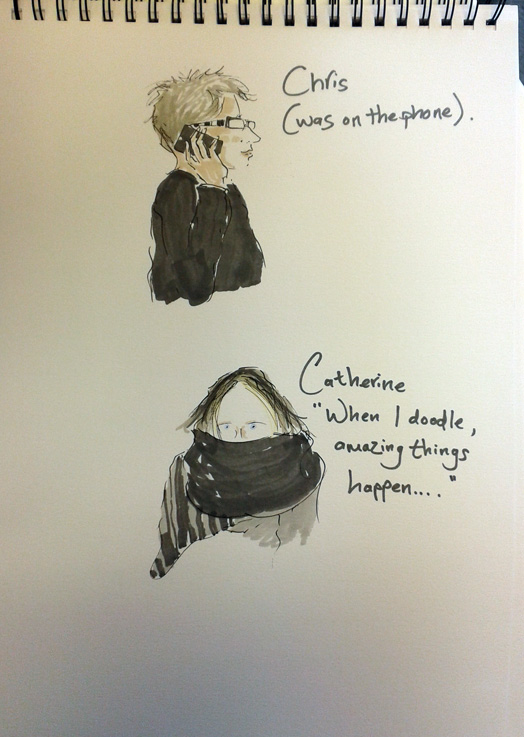 Chris
(was on the phone).
Catherine
"When I doodle,
amazing things
happen...."